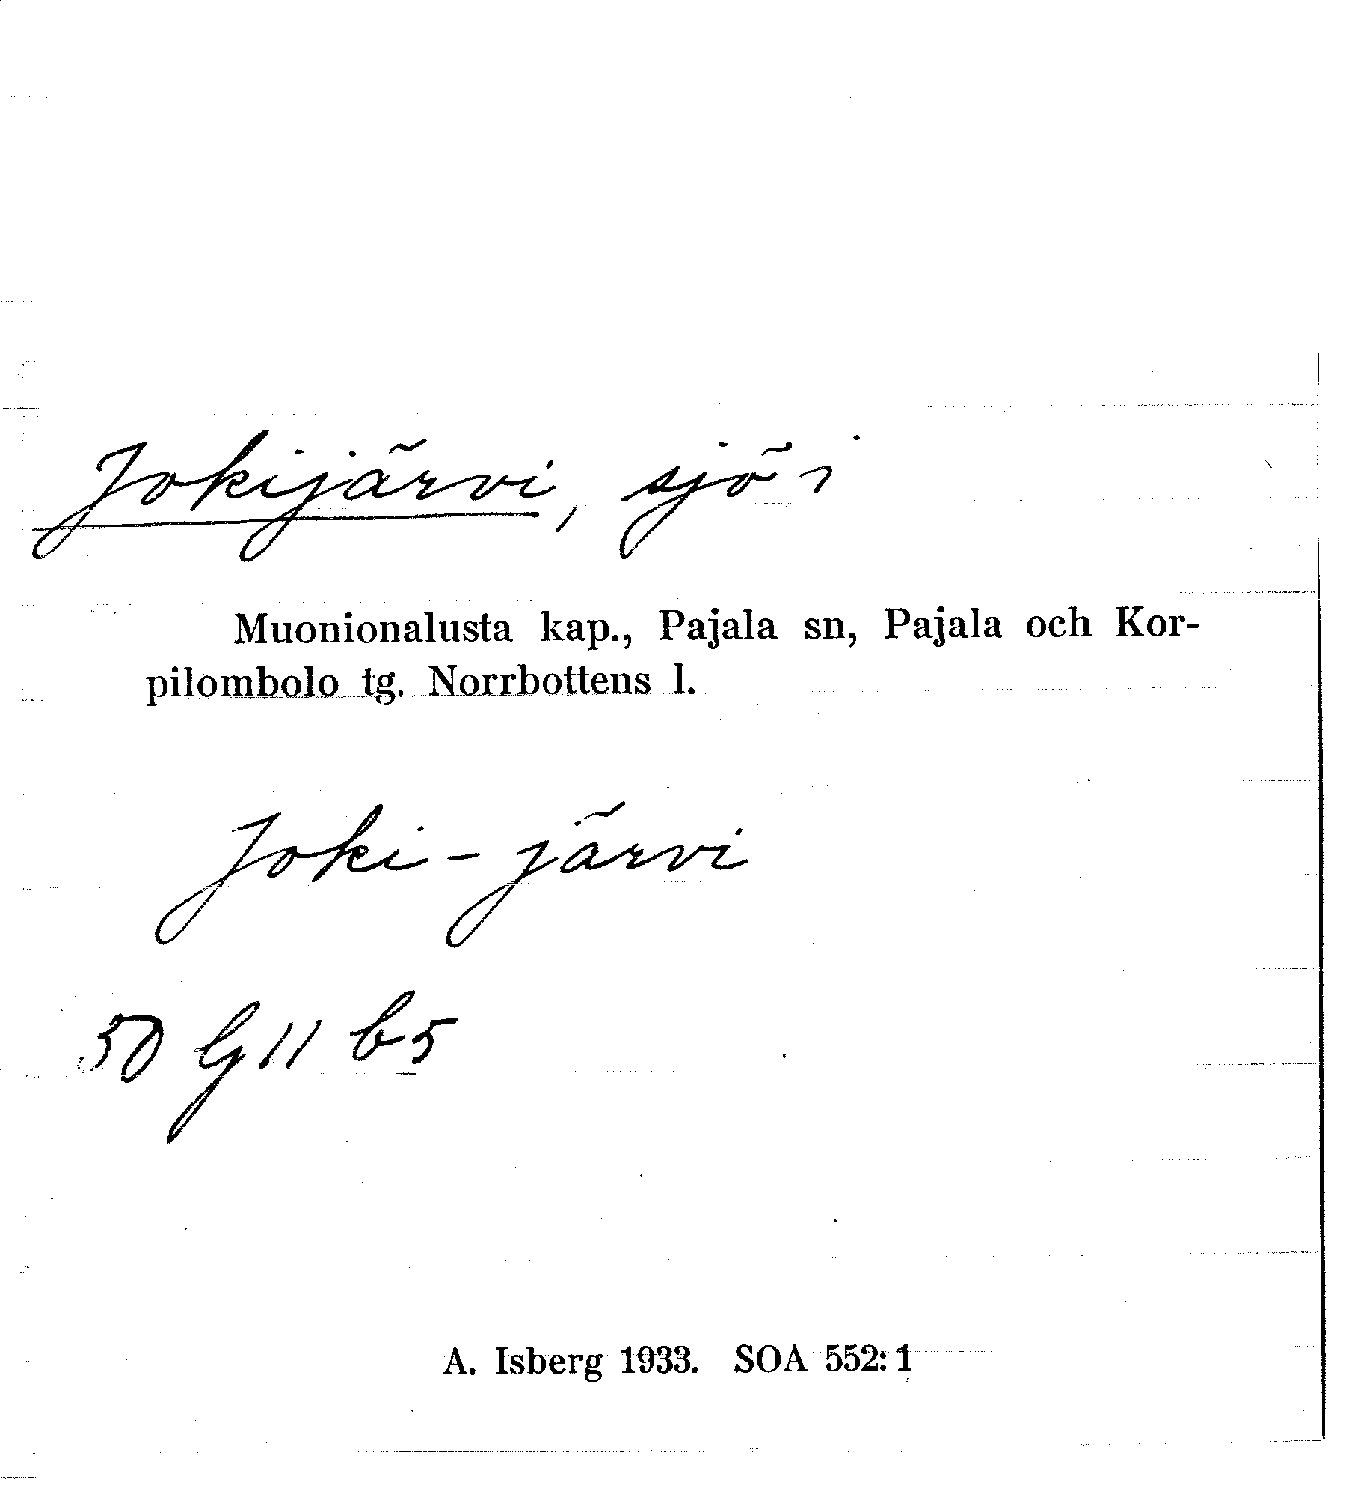 Jokijärvi, sjö i
Muonionalusta kap., Pajala sn, Pajala och Kor-
pilombolo tg. Norrbottens l.
Joki-järvi
50 G 11 b5
A. Isberg 1933. SOA 552:1